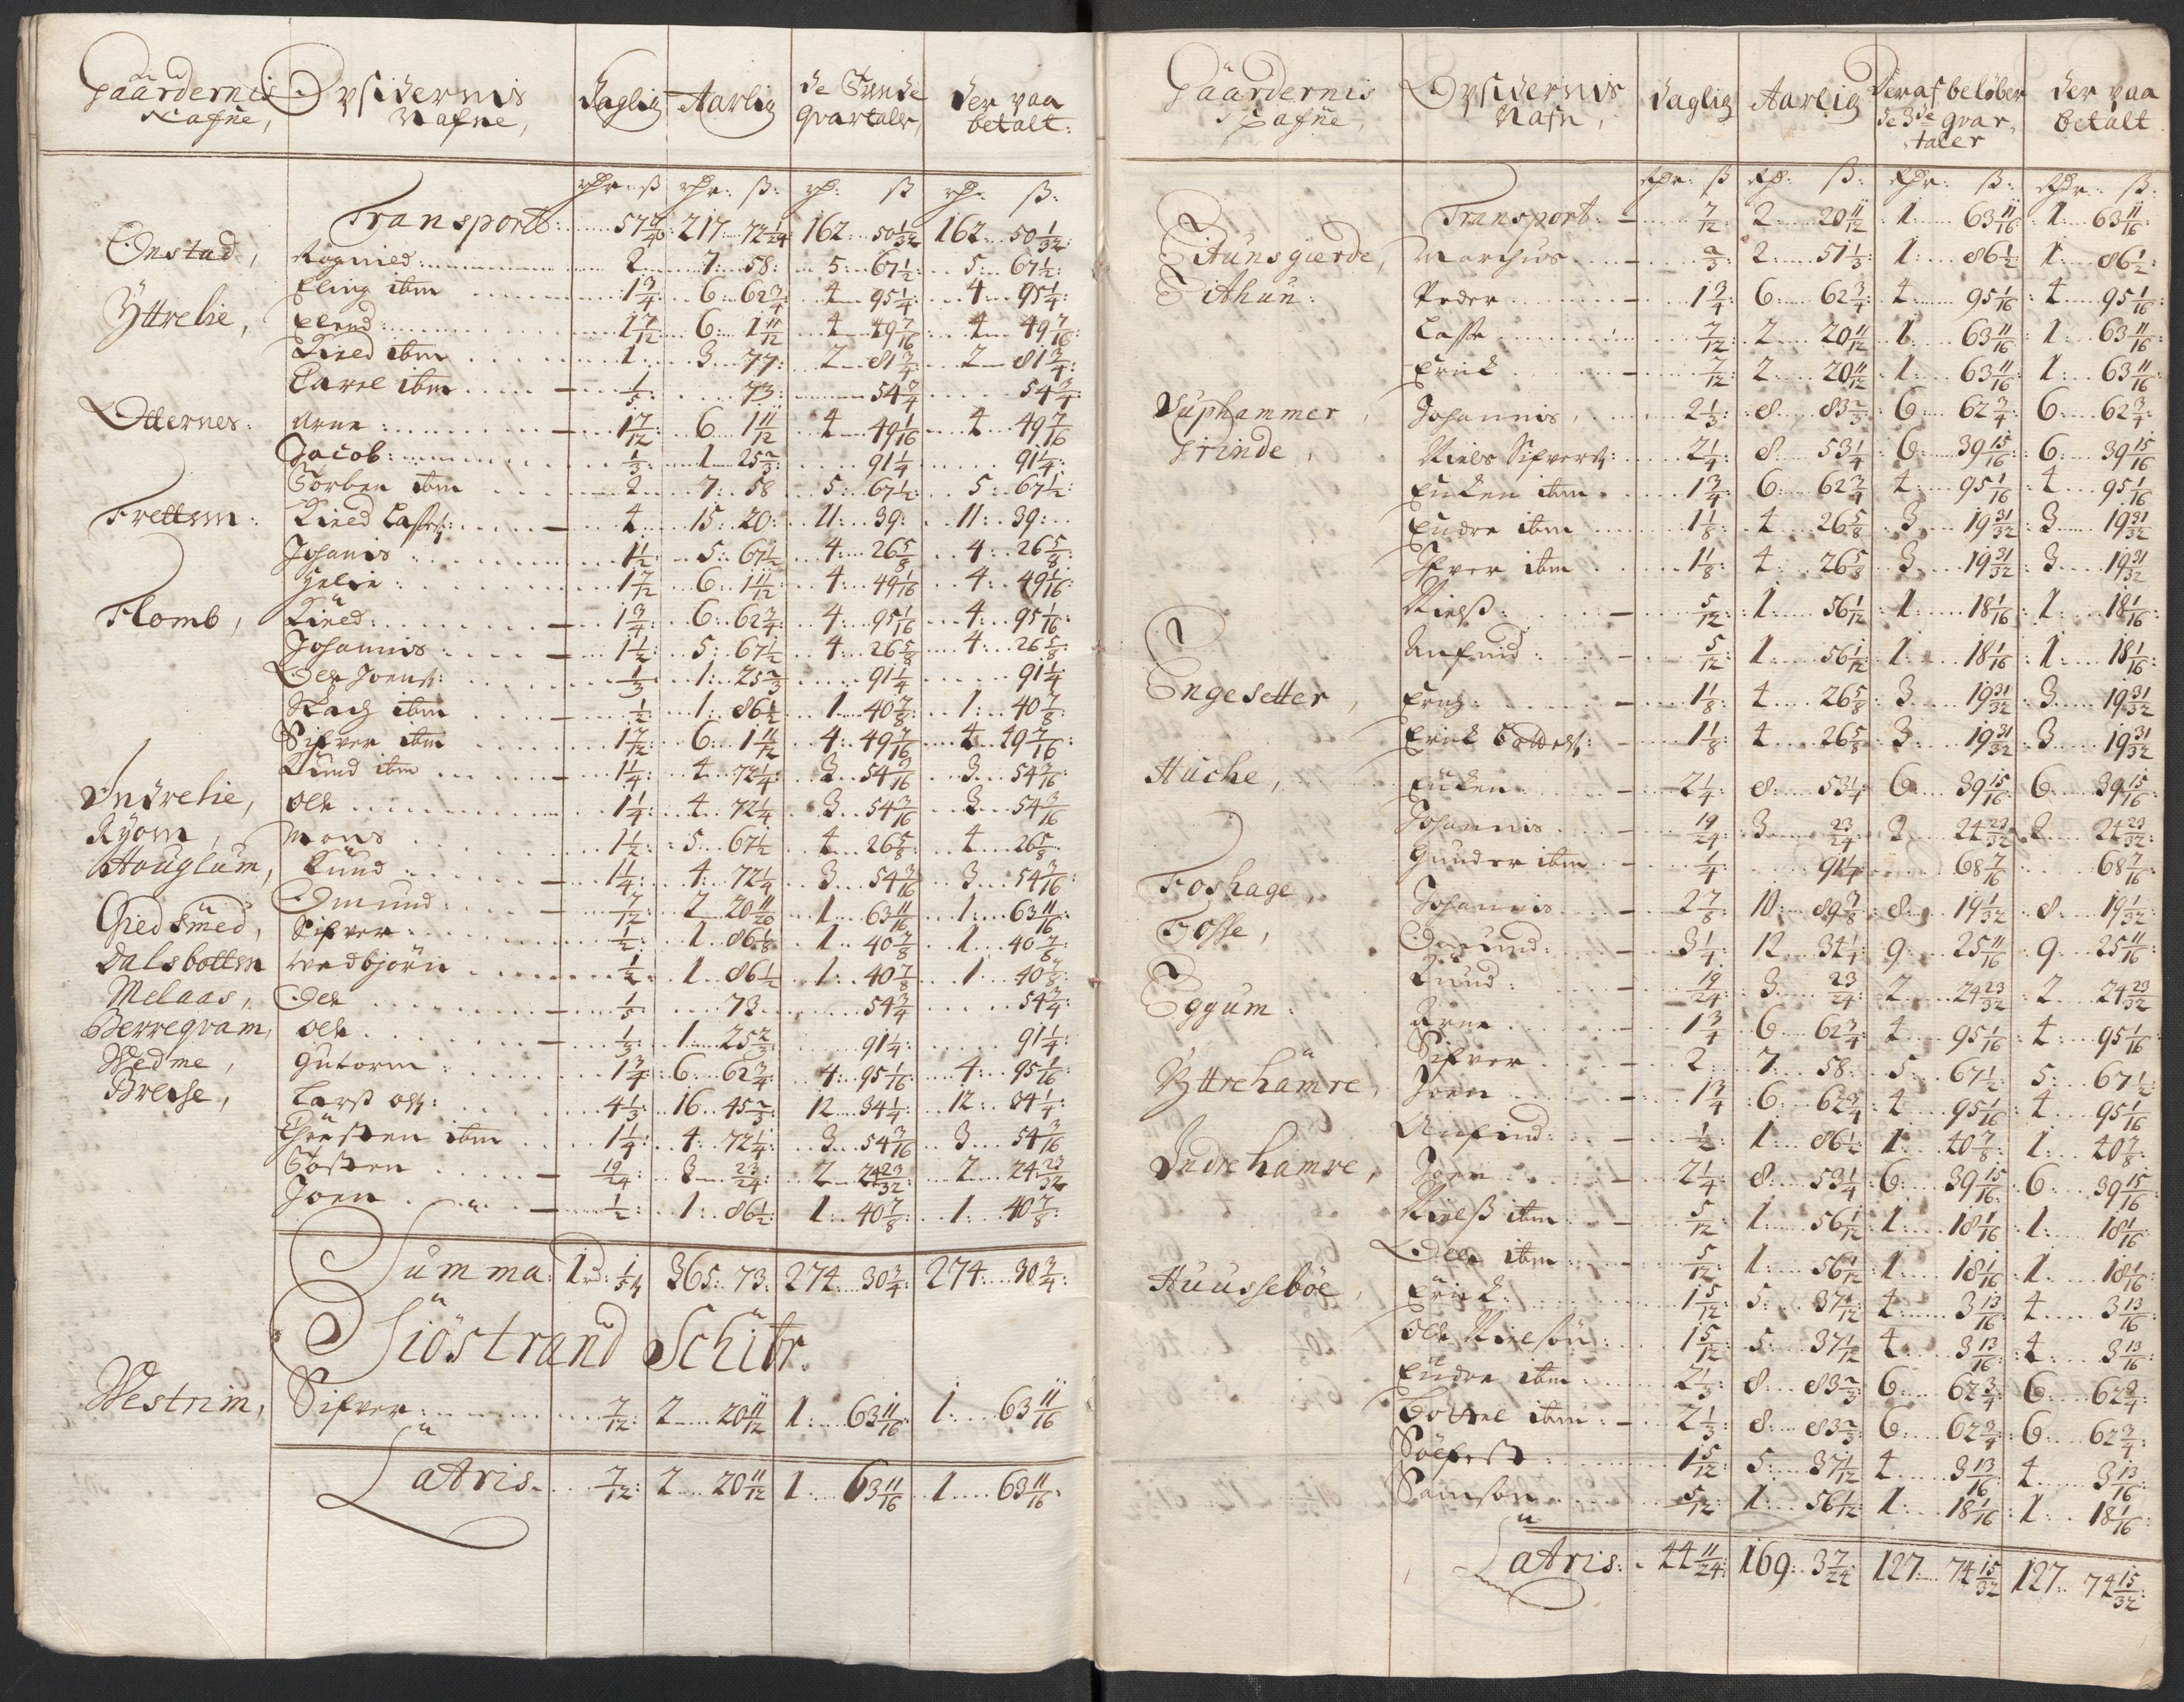 Gaardernis Nafne, Opsidernis Nafne, Daglig Aarlig de Trende qvartaler, Der paa betalt:
rdr: ß rdr: ß: rd: ß rd: ß:
Transport: 57 217 72 1/24 162 50 1/32 162 50 1/32
Onstad, Rognied: 2 7 58: 5: 67 1/2 5: 67 1/2:
Eling ibm 1 3/4: 6: 62 3/4: 4 95 1/4: 4 95 1/4:
Yttrelie, Elend: 1 7/12 6: 1 11/12 4 49 7/16 4 49 7/16:
Kied ibm 1 3 77: 2 81 3/4 2 81 3/4:
Carel ibm 1/5 73: 54 3/4 54 3/4:
Otternes: Arne: 1 7/12 6 1 11/12 4 49 1/16 4 49 7/16
Jacob: 1/3: 1 25 2/3: 91 1/4 91 1/4:
Torben ibm 2 7: 58 5: 67 1/2: 5: 67 1/2:
Frettem: Kied Lasses: 4 15: 20: 11: 39: 11: 39:
Johanis 1 1/2: 5: 67 1/2 4: 26 5/8 4: 26 5/8:
Helie: 1 7/12 6: 1 11/12 4: 49 1/16 4: 49 1/16:
Flomb, Kied: 1 3/4 6: 62 3/4: 4: 95 1/16 4: 95 1/16:
Johannis 1 1/2: 5: 67 1/2 4: 26 5/8 4: 26 5/8:
Ole Joens: 1/3 1: 25 2/3 91 1/4 91 1/4:
Stach ibm 1/2 1: 86 1/2 1 40 7/8 1: 40 7/8
Sifver ibm 1 7/12 6: 1 11/12 4: 49 7/16 4 49 7/16:
Kund ibm 1 1/4: 4 72 1/4: 3 54 3/16 3 54 3/16:
Indrelie, Ole 1 1/4: 4 72 1/4 3 54 3/16 3 54 3/16
Ryom, Mons 1 1/2: 5 67 1/2 4 26 5/8 4 26 5/8
Houglum, Kund 1 1/4: 4: 72 1/4 3 54 3/16 3 54 3/16:
Giedsmed, Omund: 7/12 2 20 11/20 1 63 11/16 1: 63 11/16
Sifver 1/2: 1 86 1/8 1 40 7/8 1 40 7/8:
Dalsbotten Vedbjörn 1/2 1 86 1/2 1: 40 7/8 1 40 7/8:
Melaas, Ole 1/5 73 54 3/4 54 3/4:
Berreqvam, Ole 1/3: 1 25 2/3 91 1/4: 91 1/4:
Wedme, Gutorm 1 3/4: 6 62 3/4: 4: 95 1/16: 4: 95 1/16:
Breise, Larß Ols: 4 1/3: 16 45 2/3: 12 34 1/4: 12: 34 1/4:
Christen ibm 1 1/4: 4: 72 1/4: 3 54 3/16 3 54 3/16
Tosten 19/24: 3 23/24: 2 24 23/32: 2 24 23/32
Joen 1/2: 1: 86 1/2: 1: 40 7/8: 1: 40 7/8:
Summa: 1 rd: 1/5 ß 365: 73: 274 30 3/4: 274 30 3/4:
Siöstrand Schibr.
Westrim, Sifver: 7/12: 2 20 11/12 1: 63 11/16: 1: 63 11/16
Latris. 7/12: 2 20 11/12 1 63 11/16 1 63 11/16:
Gaardernis Nafne, Opsidernis Nafn, Daglig Aarlig Deraf beløber de 3de qvartaler der paa betalt
Rdr: ß Rd: ß: Rdr: ß: Rdr: ß:
Transport: 7/12 2 20 11/12 1 63 11/16 1 63 11/16:
Eitunsgierde, Marchus 2/3: 2 51 1/3 1: 86 1/2 1: 86 1/2:
Eithun: Peder 1 3/4 6 62 3/4: 4 95 1/16 4 95 1/16:
Lasse 7/12: 2 20 11/12 1 63 11/16: 1: 63 11/16
Erick 7/12 2: 20 11/12 1: 63 11/16: 1: 63 11/16:
Suphammer, Johannis 2 1/3: 8 83 2/3: 6: 62 3/4 6: 62 3/4:
Frinde, Niels Sifvers: 2 1/4: 8 53 1/4 6: 39 15/16 6: 39 15/16
Encken ibm 1 3/4 6: 62 3/4 4 95 1/16 4 95 1/16
Endre ibm 1 1/8: 4 26 5/8 3 19 31/32 3 19 31/32
Ifver ibm 1 1/8: 4 26 5/8 3 19 31/32: 3 19 31/32
Nielß 5/12: 1 56 1/12: 1 18 1/16: 1: 18 1/16:
Anfind 5/12 1: 56 1/12 1: 18 1/16: 1: 18 1/16:
Engesetter, 1 1/8: 4 26 5/8: 3 19 31/32 3: 19 31/32
Erick 1 1/8: 4 26 5/8: 3 19 31/32 3: 19 31/32
Huche, Encken 2 1/4: 8: 53 1/4 6 39 15/16 6: 39 15/16:
Johannis 19/24: 3 23/24: 2 24 23/32: 2 24 23/32:
Gunder ibm 1/4 91 1/4 68 7/16 68 7/16
Foshage, Johannis 2 7/8: 10 89 3/8: 8 19 1/32 8: 19 1/32:
Fosse, Omund: 3 1/4: 12 34 1/4: 9 25 11/16 9: 25 11/16:
Kund 19/24: 3 23/24: 2 24 23/32: 2 24 23/32:
Eggum: Arne 1 3/4 6: 62 3/4 4 95 1/16: 4 95 1/16:
Sifver 2 7: 58: 5: 67 1/2: 5: 67 1/2
Yttrehamre, Joen 1 3/4 6: 62 3/4 4 95 1/16: 4 95 1/16
Anfind: 1/2 1: 86 1/2 1: 40 7/8 1: 40 7/8:
Indrehamre, Joen 2 1/4: 8: 53 1/4: 6: 39 15/16 6: 39 15/16:
Nielß ibm 5/12 1: 56 1/12: 1: 18 1/16: 1: 18 1/16:
Ole ibm 5/12: 1: 56 1/12: 1: 18 1/16 1: 18 1/16:
Huussebøe, Erick 1 5/12 5: 37 1/12: 4 3 13/16 4 3 13/16:
Ole Nielsön 1 5/12 5: 37 1/12 4 3 13/16: 4: 3 13/16:
Endre ibm 2 1/3: 8 83 2/3: 6: 62 3/4 6: 62 3/4:
Botvel ibm: 2 1/3 8: 83 2/3: 6: 62 3/4: 6: 62 3/4:
Sölfest 1 5/12: 5: 37 1/12 4 3 13/16: 4 3 13/16:
Samson 5/12: 1: 56 1/12: 1: 18 1/16: 1: 18 1/16:
Latris: 44 11/24: 169: 3 7/24 127: 74 15/32 127: 74 15/32: